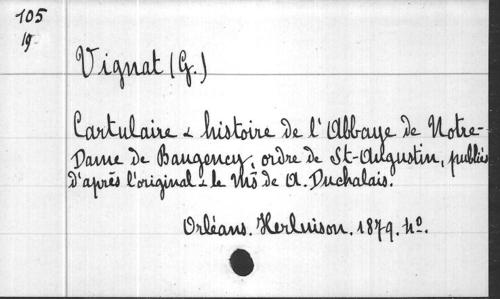 105
19
Vignat (G.)
Cartulaire & histoire de l'Abbaye de Notre-
Dame de Baugency, ordre de St-Augustin, publiés
d'après l'original & le Ms de A. Duchalais.
Orléans. Herluison. 1879. 4o.